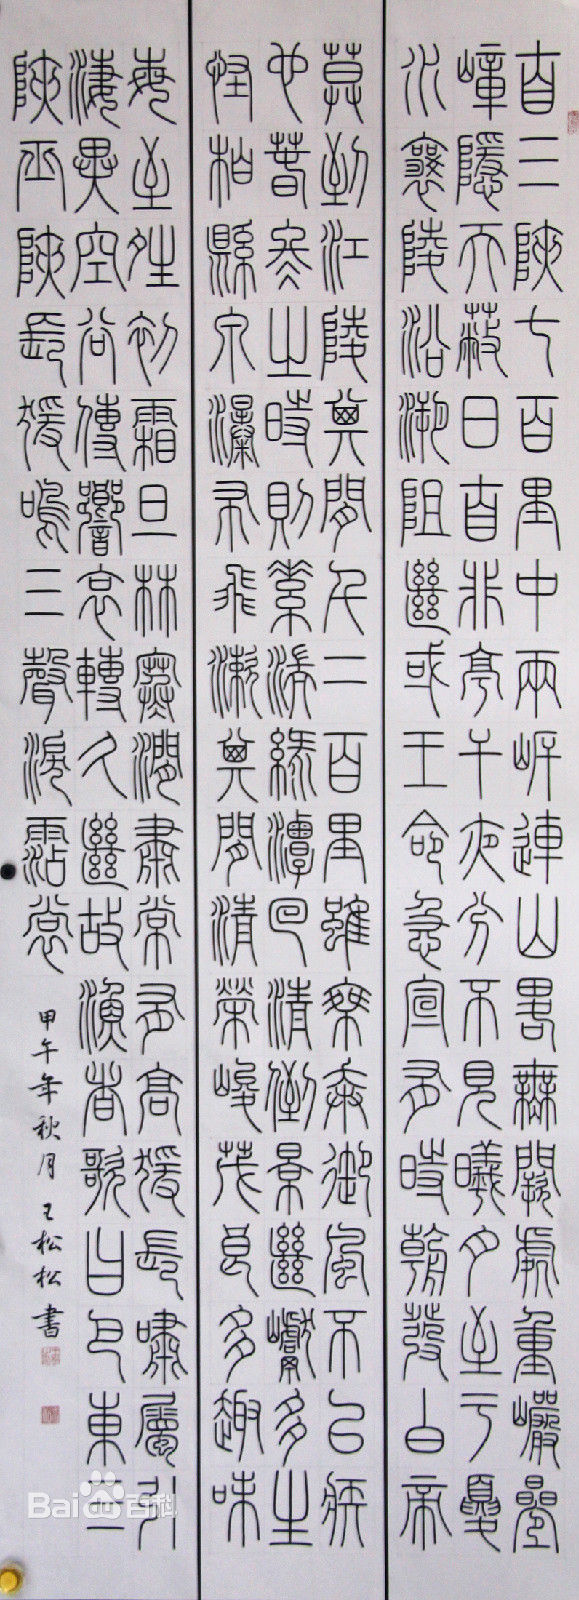 自三陜七百里中兩岸連山略無闕處重巖疊
嶂隱天蔽日自非亭午夜分不見曦月至于夏
水襄陵沿溯阻絕或王命急宣有時朝發白帝
莫到江陵其間千二百里雖乘奔御風不已疾
也春冬之時則素湍綠潭回清倒景絕巘多生
怪柏縣泉瀑布飛漱其間清榮峻茂良多趣味
每至晴初霜旦林寒澗肅常有高猿長嘯屬引
淒異空谷傳響哀轉久絕故漁者歌曰巴東三
陜巫陜長猿鳴三聲淚霑裳
甲午年秋月王松松書
Bai百科